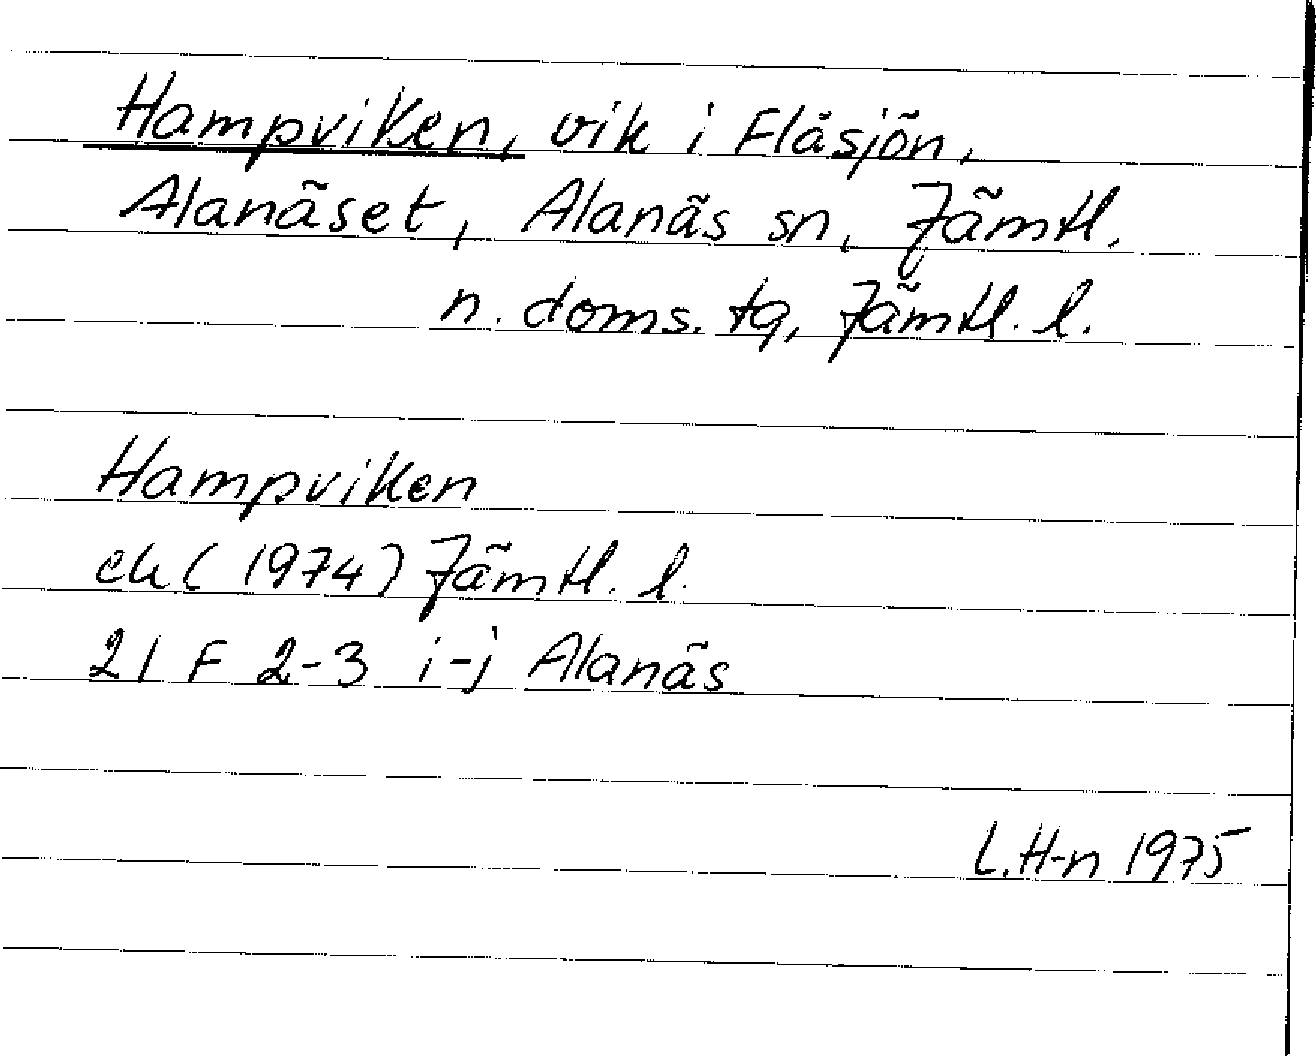 Hampviken, vik i Flåsjön,
Alanäset, Alanäs sn, Jämtl.
n. doms. tg, Jämtl. l.
Hampviken
ek (1974) Jämtl. l.
21 F 2-3 i-j Alanäs
L.H-n 1975